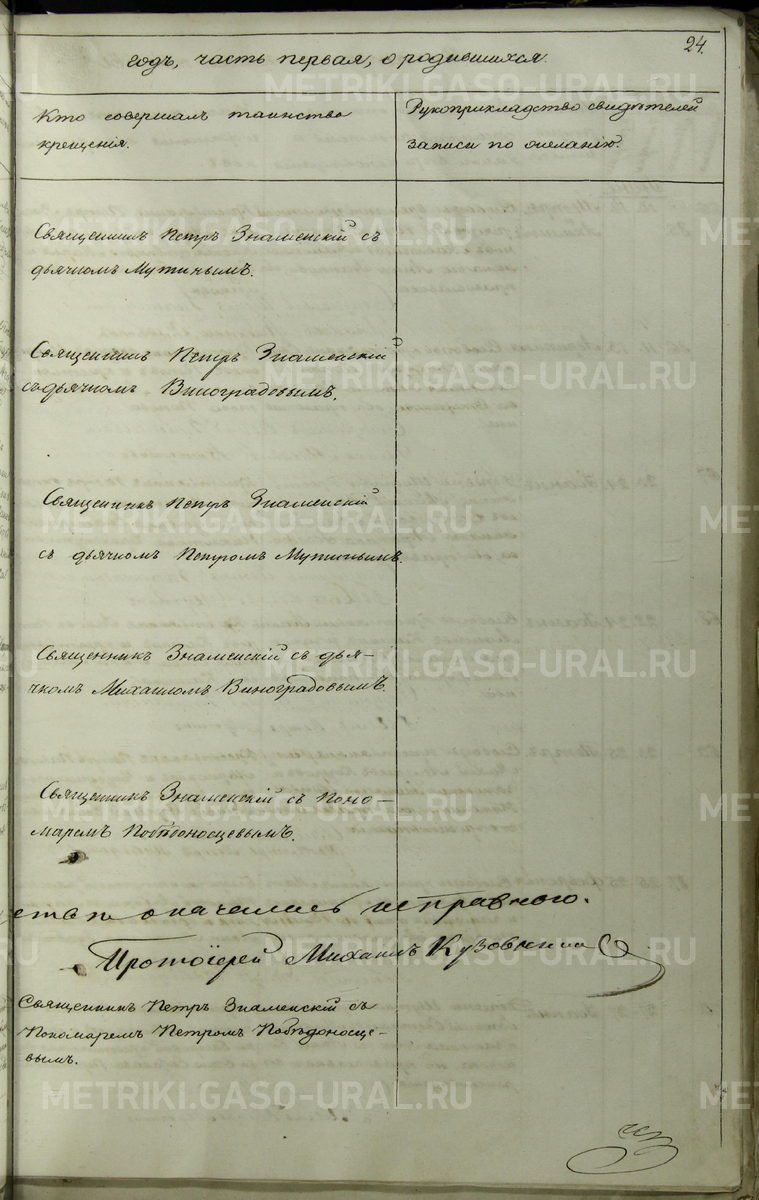 24.
годъ, часть первая, о родившихся.
Кто совершалъ таинство
крещенія.
Рукоприкладство свидѣтелей
записи по желанію.
Священникъ Петръ Знаменскій съ
дьячкомъ Мутинымъ.
Священникъ Петръ Знаменскій
съ дьячкомъ Виноградовымъ.
Священникъ Петръ Знаменскій
съ дьячкомъ Петромъ Мутинымъ.
Священникъ Знаменскій съ дья-
чкомъ Михаиломъ Виноградовымъ.
Священникъ Знаменскій съ Поно-
маремъ Побѣдоносцевымъ.
оказалась исправною.
Протоіерей Михаилъ
Священникъ Петръ Знаменскій съ
Пономаремъ Петромъ Побѣдоносце-
вымъ.
METRIKI.GASO-URAL.RU